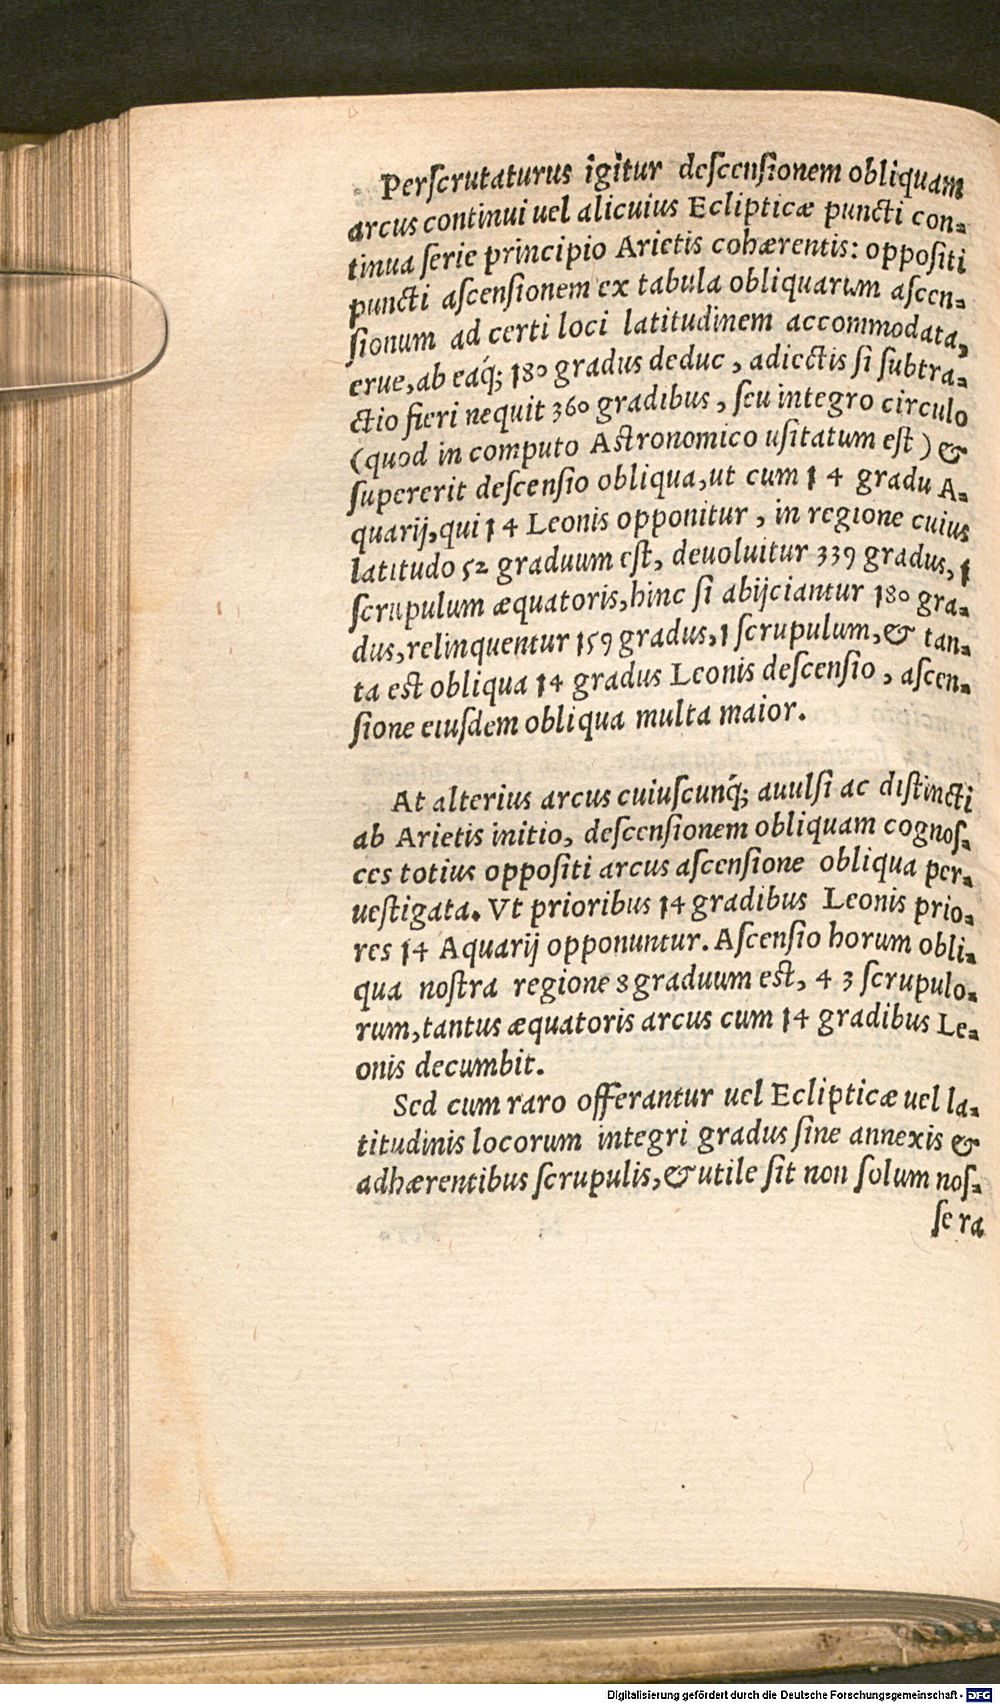 Perſcrutaturus igitur deſcenſionem obliquam
arcus continui uel alicuius Eclipticæ puncti con-
tinua ſerie principio Arietis cohærentis: oppoſiti
puncti aſcenſionem ex tabula obliquarum aſcen-
ſionum ad certi loci latitudinem accommodata,
erue, ab eaq́; 180 gradus deduc, adiectis ſi ſubtra-
ctio fieri nequit 360 gradibus, ſeu integro circulo
(quod in computo Aſtronomico uſitatum eſt) &
ſupererit deſcenſio obliqua, ut cum 14 gradu A-
quarij, qui 14 Leonis opponitur, in regione cuius
latitudo 52 graduum eſt, deuoluitur 339 gradus, 1
ſcrupulum æquatoris, hinc ſi abijciantur 180 gra-
dus, relinquentur 159 gradus, 1 ſcrupulum, & tan-
ta eſt obliqua 14 gradus Leonis deſcenſio, aſcen-
ſione eiuſdem obliqua multa maior.
At alterius arcus cuiuſcunq́; auulſi ac diſtincti
ab Arietis initio, deſcenſionem obliquam cognoſ-
ces totius oppoſiti arcus aſcenſione obliqua per-
ueſtigata. Vt prioribus 14 gradibus Leonis prio-
res 14 Aquarij opponuntur. Aſcenſio horum obli-
qua noſtra regione 8 graduum eſt, 43 ſcrupulo-
rum, tantus æquatoris arcus cum 14 gradibus Le-
onis decumbit.
Sed cum raro offerantur uel Eclipticæ uel la-
titudinis locorum integri gradus ſine annexis &
adhærentibus ſcrupulis, & utile ſit non ſolum noſ-
ſe ra
Digitalisierung gefördert durch die Deutsche Forschungsgemeinschaft - DFG